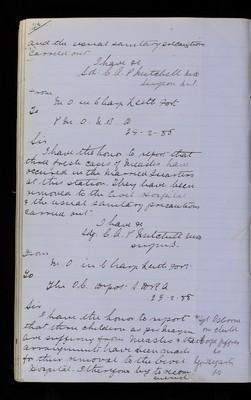 and the usual sanitary precautions
carried out
I have &c
Sd. C. A. P. Mitchell MB
Surgeon
From
M. O. in Charge Leith Fort
To
P. M. O. N. B. D
29-2-88
Sir
I have the honor to report that
three fresh cases of Measles have
occurred in the Married Quarters
at this station. They have been
removed to the Civil Hospital
& the usual sanitary precautions
carried out
I have &c
Sdg. C. A. P. Mitchell MB
Surgeon
From
M. O. in Charge Leith Fort
To
The O. C. Depot. RA
29-2-88
Sir
I have the honor to report
that three children as per margin
are suffering from Measles &
arrangements have been made
for their removal to the Civil
Hospital. I therefore beg to recom
mend
Osborne
child
do
do